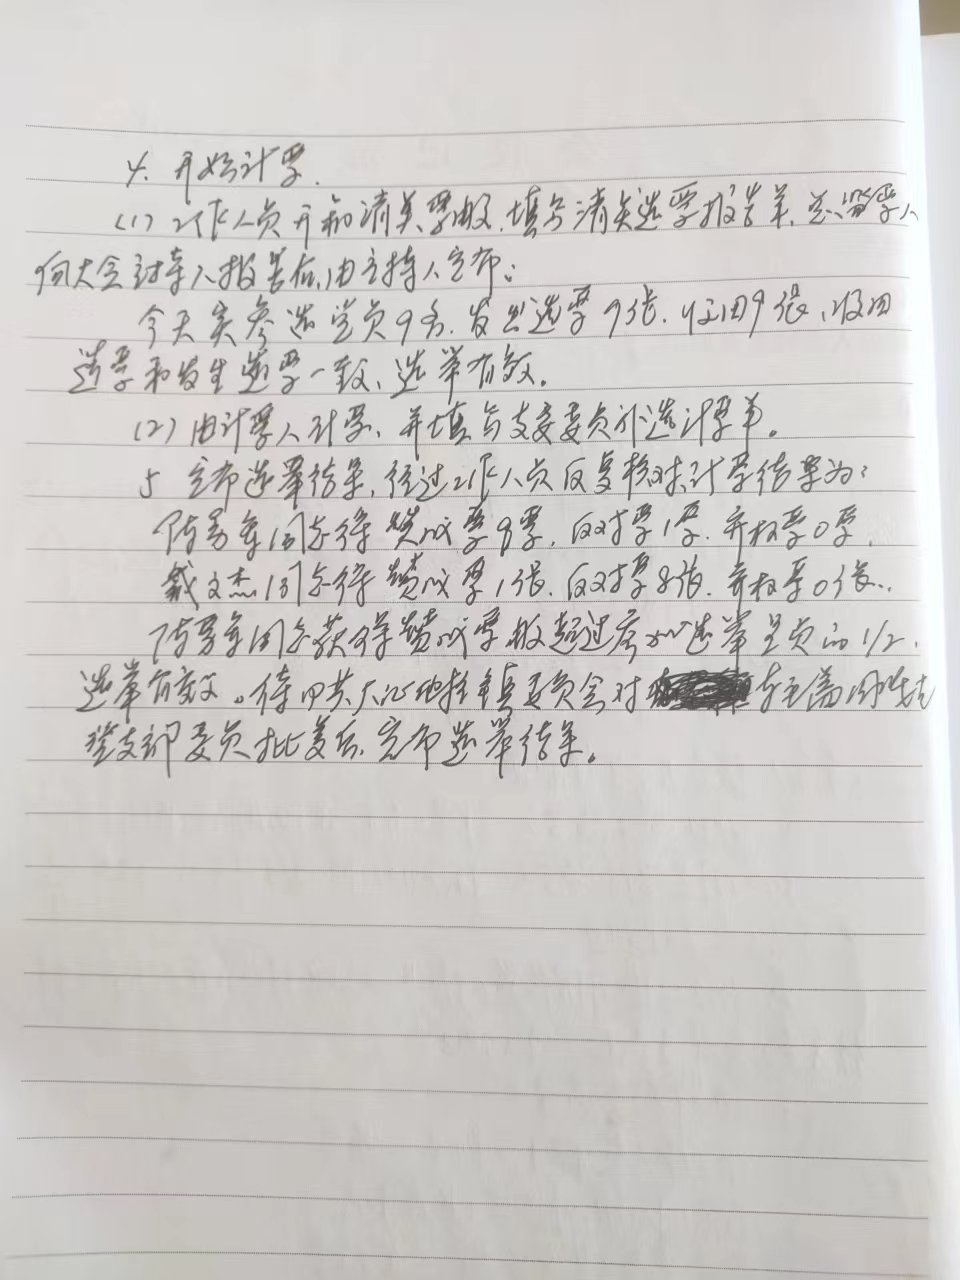 4. 开始计票.
(1) 工作人员开始清点票数,填写清点选票报告单,总监票人
向大会主持人报告后,由主持人宣布:
今天实参选党员9名.发出选票9张.收回9张,收回
选票和发出选票一致、选举有效。
(2) 由计票人计票、并填写支委委员补选计票单。
5 宣布选举结果,经过工作人员反复核对,计票结果为:
陈 年同志得赞成票8票,反对票1票.弃权票0票,
戴文杰同志得赞成票1张.反对票8张.弃权票0张.
陈 年同志获得赞成票数超过参加选举党员的1/2,
选举有效。待中共 镇委员会对
支部委员批复后,宣布选举结果。